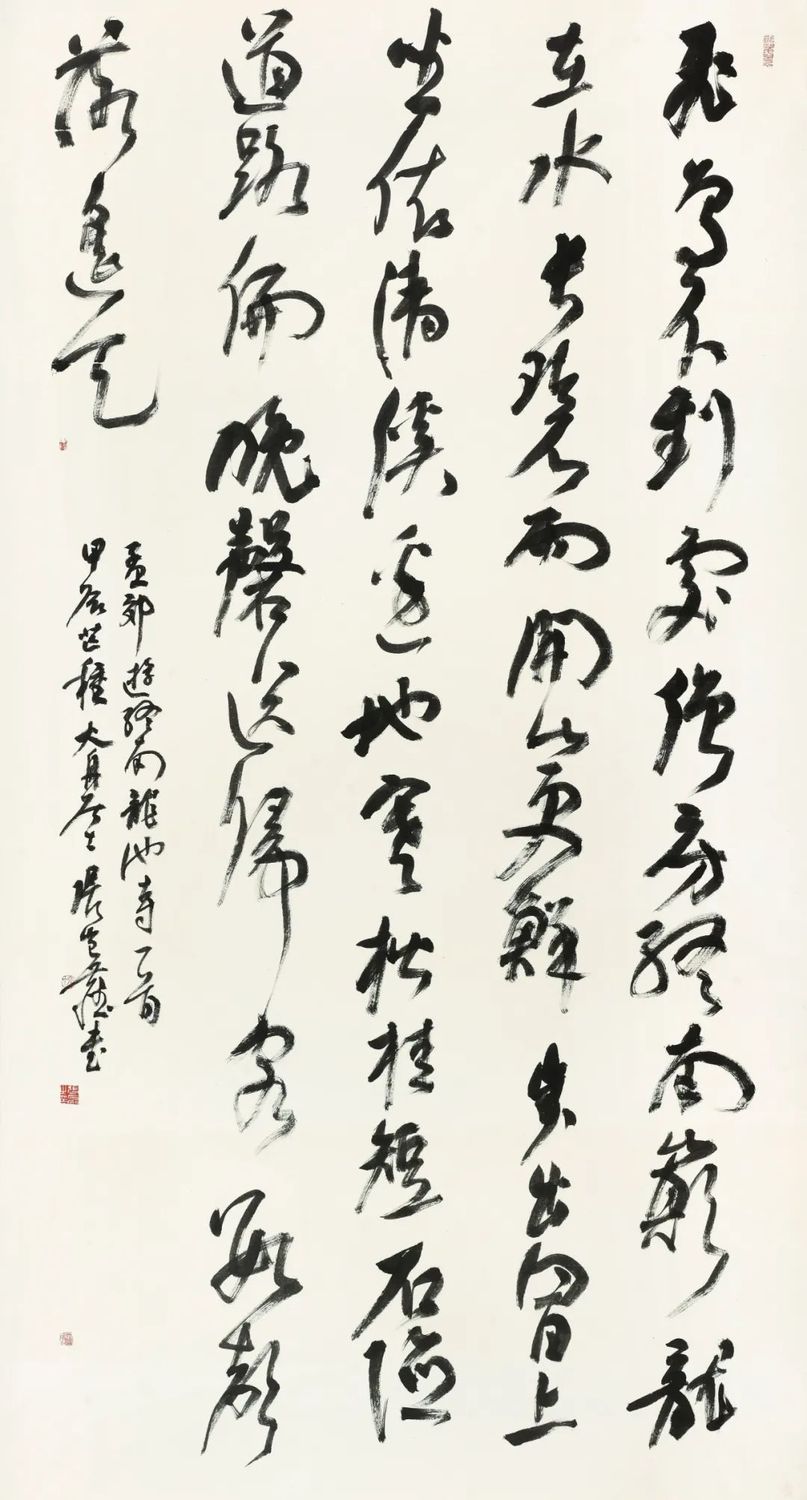 飛鳥不到處僧房終南巔龍
在水長碧雨開山更鮮步出白日上
坐依清溪邊地寒松桂短石險
道路偏晚磬送歸客數聲
落遙天
孟郊遊終南龍池寺一首
甲辰芒種大舟居士張書